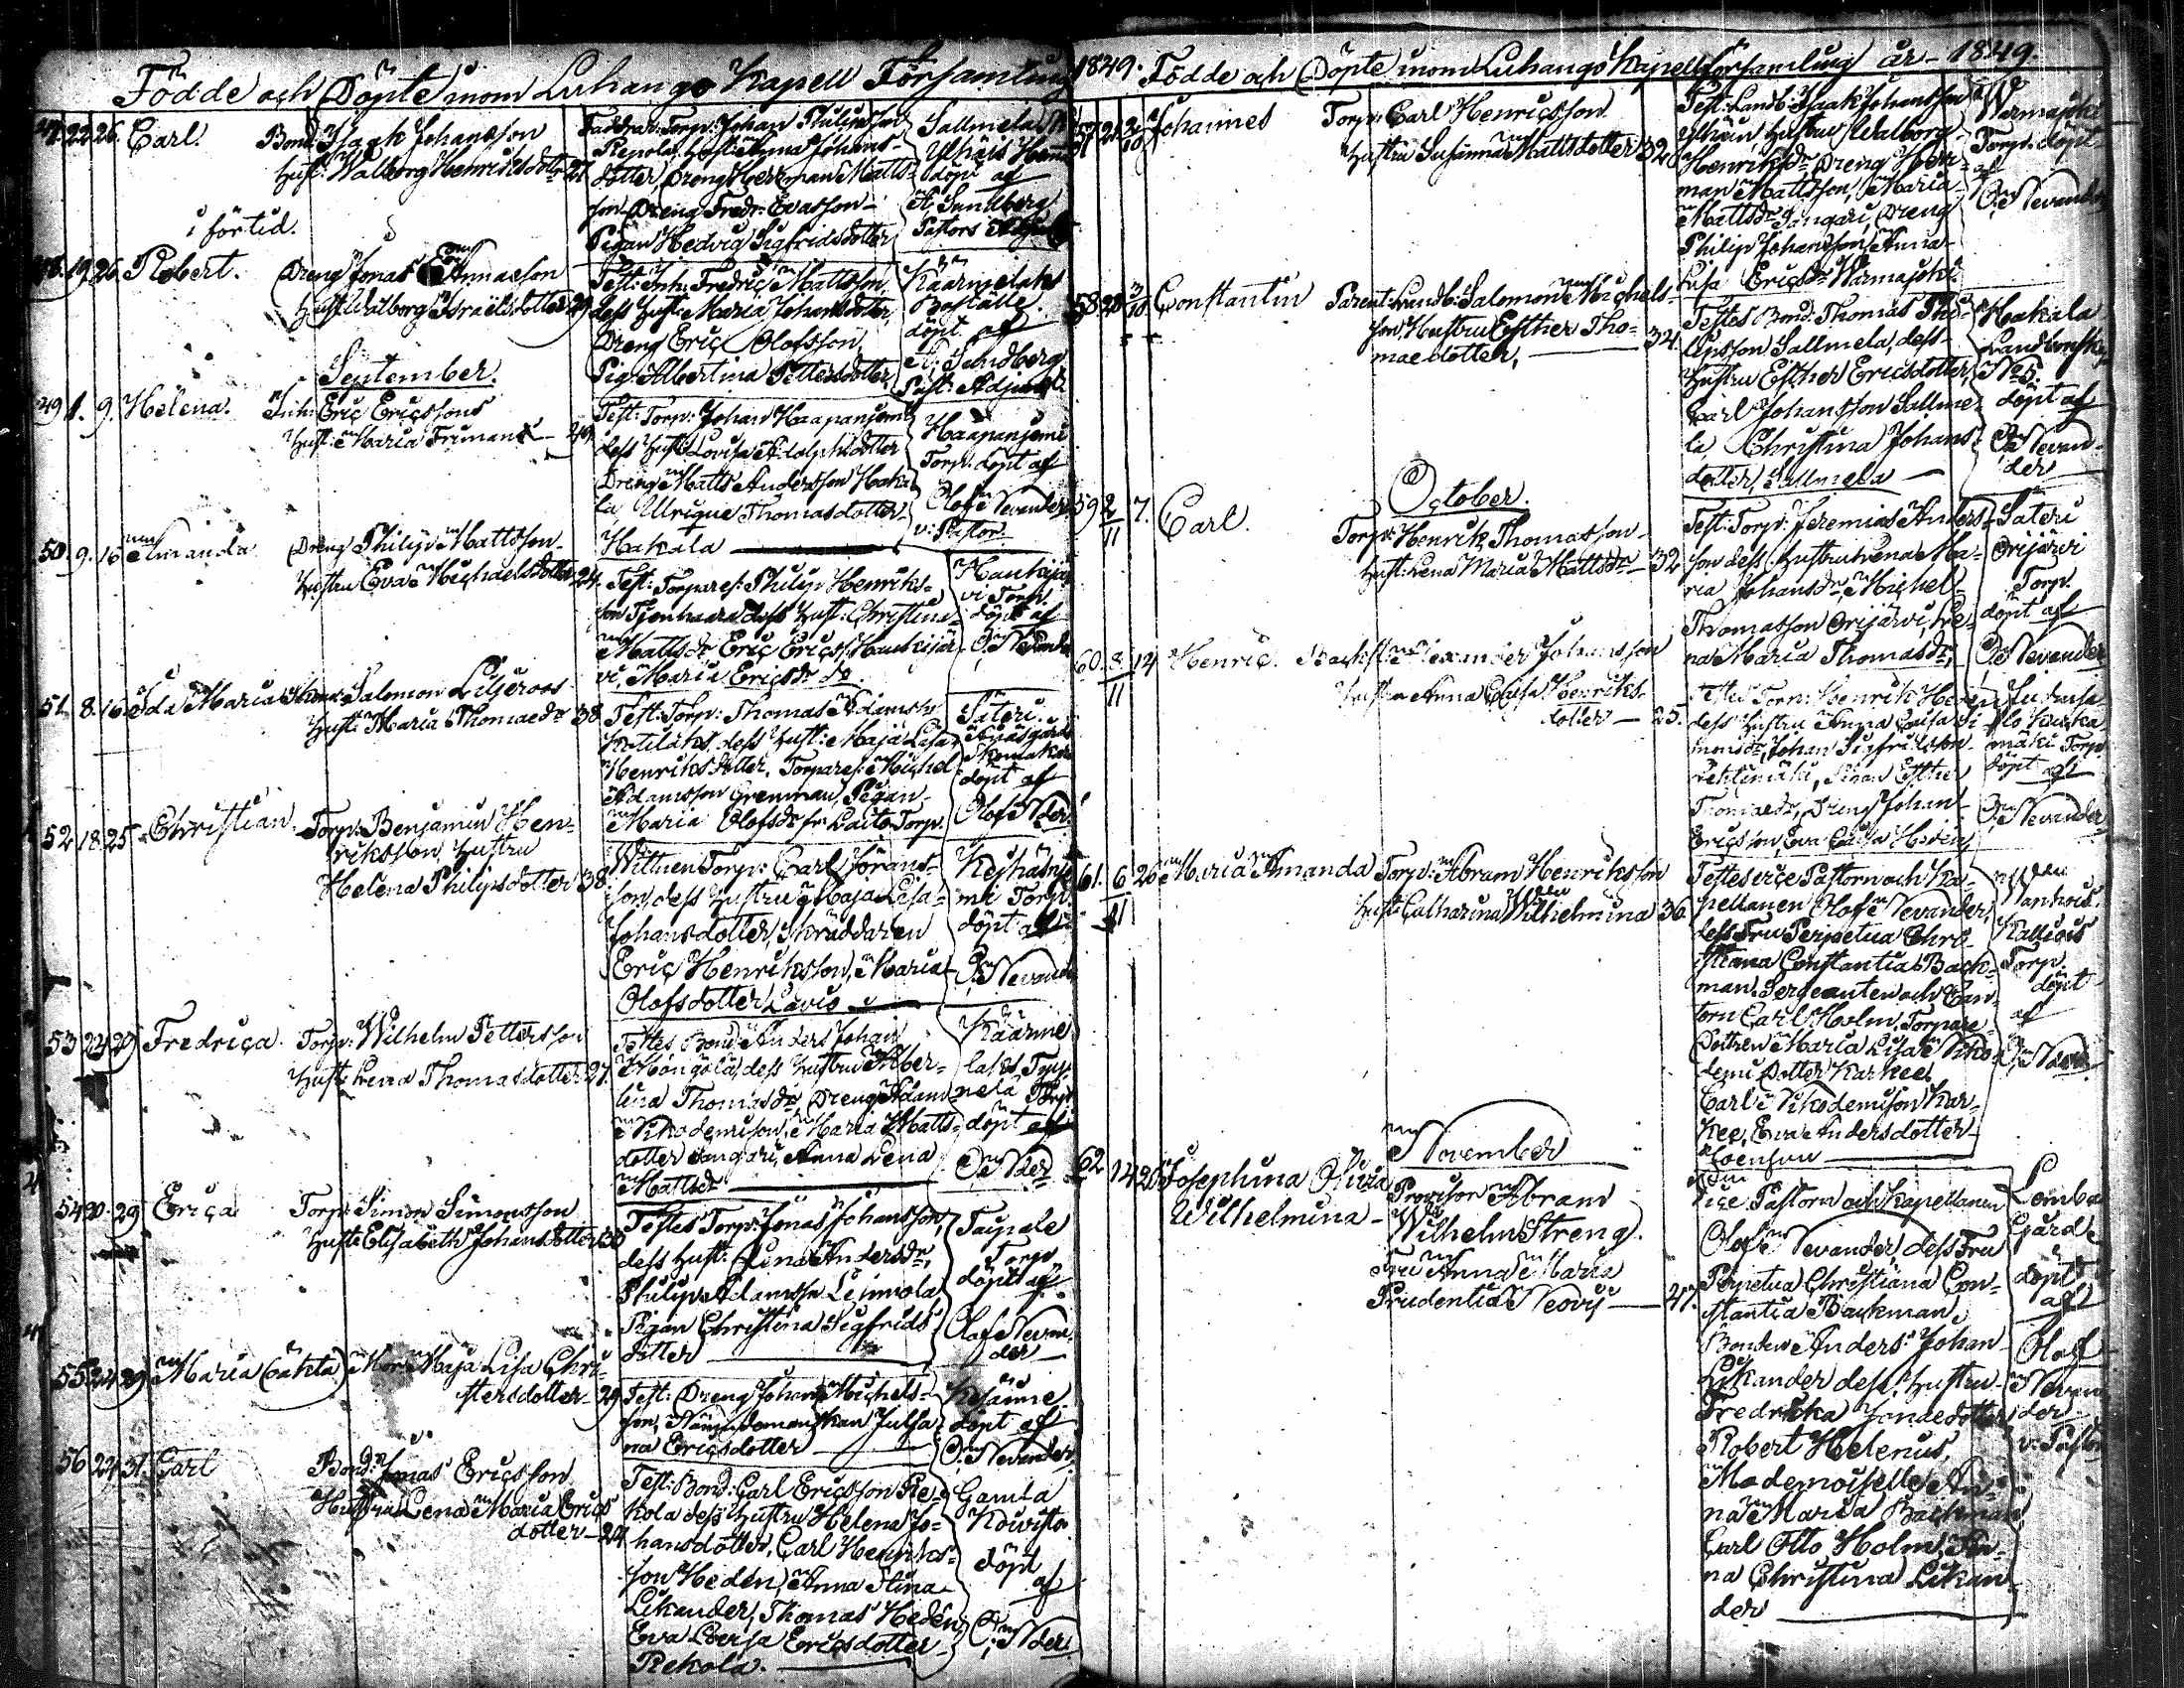 Födde och Döpte inom Luhango Kapell Församling
47. 22. 26. Carl.
Bond: Isaak Johansson
Hust: Walborg Henriksdotter 27
i förtid.
Faddrar: Torp: Johan Philipsson
Repola, Hust: Anna Johans-
dotter, Dreng Herrman Matts-
son, Dreng Fredr: Evasson
Pigan Hedvig Sigfridsdotter
Sallmela
döpt af
A. Sundberg
Pastors Adjunkt
48. 19. 26. Robert.
Dreng Jonas Annasson
Hust: Walborg Israelsdotter 29
Test: Inh: Fredric Mattsson,
dess Hust: Maria Johansdotter,
Dreng Eric Olofsson,
Pig: Albertina Pettersdotter,
Käärmelaks
Boställe.
döpt af
A: Sundberg
Past: Adjunkt.
September.
49 1. 9. Helena.
Inh: Eric Ericssons
Hust: Maria Friman
Test: Torp: Johan Haapaniemi
dess Hust: Lovisa Adolphsdotter
Dreng Matts Andersson Haka-
la Ullrique Thomasdotter
Hakala
Haapaniemi
Torp: döpt af
Olof Nevander
v: Pastor
50. 9. 16 Amanda
Dreng Philip Mattsson
Hustru Eva Michaelsdotter 24.
Test: Torpares: Philip Henriks-
son dess Hust: Christina
Mattsdr Eric Ericss. Haukijär-
vi, Maria Ericsdr do.
Haukijär-
vi Torp.
döpt af
O: Nevander
51. 8. 16 Ida Maria
Salomon Liljeroos
Hust: Maria Thomaedr 38.
Test: Torp: Thomas Adamss.
dess Hust: Maja Lisa
Henriksdotter, Torpares: Michel
Adamsson Grenman, Pigan
Maria Olofsdr fr: Laito Torp.
Säteri.
döpt af
Olof Nder.
52 18. 25. Christian.
Torp: Benjamin Hen-
riksson, Hustru
Helena Philipsdotter 38
Wittnen Torp: Carl Jörans-
son, dess Hustru Maja Lisa
Johansdotter, Skräddaren
Eric Henriksson, Maria
Olofsdotter Lavio
mi Torp.
döpt af
O: Nevander
53 24 29 Fredrica.
Torp: Wilhelm Pettersson
Hust: Lena Thomasdotter 27.
Testes Bond: Anders Johan
Mongola, dess Hustru Alber-
tina Thomasdr, Dreng Adam
Nikodemisson, Maria Matts-
dotter Angari, Anna Lena
Mattsdr
Käärme
laks
Torp
döpt af
O: Nder
54 20. 29 Erica
Torp: Simon Simonsson
Hust: Elisabeth Johansdotter 30
Testes Torp: Jonas Johansson,
dess Hust: Lena Andersdr,
Philip Adamss. Leimola
Pigan Christina Sigfrids-
dotter
Taipale
Torp.
döpt af
Olof Nevan-
der
55. 24 29 Maria (oäkta)
Mor: Maja Lisa Chri-
stersdotter 29
Test: Dreng Johan Michels-
son, Nämndemanskan Julia-
na Ericsdotter
döpt af
O: Nevander
56 24 31. Carl
Bond: Jonas Ericsson
Hustru Lena Maria Erics
dotter 24
Test: Bond: Carl Ericsson Re-
kola dess Hustru Helena Jo-
hansdotter, Carl Henriks-
son Heden, Anna Stina
Likander, Thomas Heden,
Eva Lovisa Ericsdotter
Rekola.
Gamla
Koivisto
döpt
af
O: Nder.
1849. Födde och Döpte inom Luhango Kapellförsamling år 1849.
57 Johannes
Torp: Carl Henricsson
Hustru Susanna Mattsdotter 32
Test: Landb: Isaak Johansson
Ylhäin Hustru Walborg
Henriksdr, Dreng Herr-
man Mattsson, Maria
Mattsdr Angari, Dreng
Philip Johansson, Anna
Lisa Ericsdr Warmajoki
Warmajoki
Torp. döpt
af
O: Nevander
58 Constantin
Parent: Landb: Salomon Michels-
son, Hustru Esther Tho-
maedotter, 34.
Testes Bond: Thomas Phi-
lipsson Sallmela, dess
Hustru Esther Ericsdotter,
Carl Johansson Sallme-
la Christina Johans-
dotter, Sallmela
Hakala
No 5.
döpt af
O: Nevan-
der
October.
59 2/11 7. Carl.
Torp: Henrik Thomasson
Hust: Lena Maria Mattsdr 32
Test: Torp: Jeremias Anders-
son dess Hustru Lena Ma-
ria Johansdr, Michel
Thomasson Orijärvi, Le-
na Maria Thomasdr,
Säteri
Orijärvi
Torp.
döpt af
O: Nevander
60. 8/11 14 Henric.
Alexander Johansson
Hustru Anna Lovisa Henriks-
dotter 25.
Testes Torp: Henrik Heden
dess Hustru Anna Lovisa Si-
monsdr, Johan Sigfridsson
Esther
Thomaedr, Dreng Johan
Ericsson, Eva Lovisa Heden
mäki Torp
döpt af
O: Nevander
61. 6/11 20 Maria Amanda
Torp: Abram Henriksson
Hust: Catharina Wilhelmina 36
Testes vice Pastorn och Ka-
pellanen Olof Nevander,
dess Fru Perpetua Chri-
stiana Constantia Back-
man. Sergeanten och Can-
torn Carl Holm, Torpare
Dottren Maria Lisa Niko-
demi Dotter Karkee,
Carl Nikodemison Kar-
kee, Eva Andersdotter
Kallvois
Torp.
döpt
af
O: Nder.
November
62 14 20 Josephina Olivia
Wilhelmina
Provisor Abram
Wilhelm Streng.
Fru Anna Maria
Prudentia Neovij 47.
Vice Pastorn och Kapellanen
Olof Nevander, dess Fru
Perpetua Christiana Con-
stantia Backman,
Bonden Anders Johan
Likander dess Hustru
Fredrika
Robert Helenius,
Mademoiselle An-
na Maria Backman
Carl Otto Holm,
na Christina Likan-
der
Gård
döpt
af
Olof
Nevan
der
v: Pastor